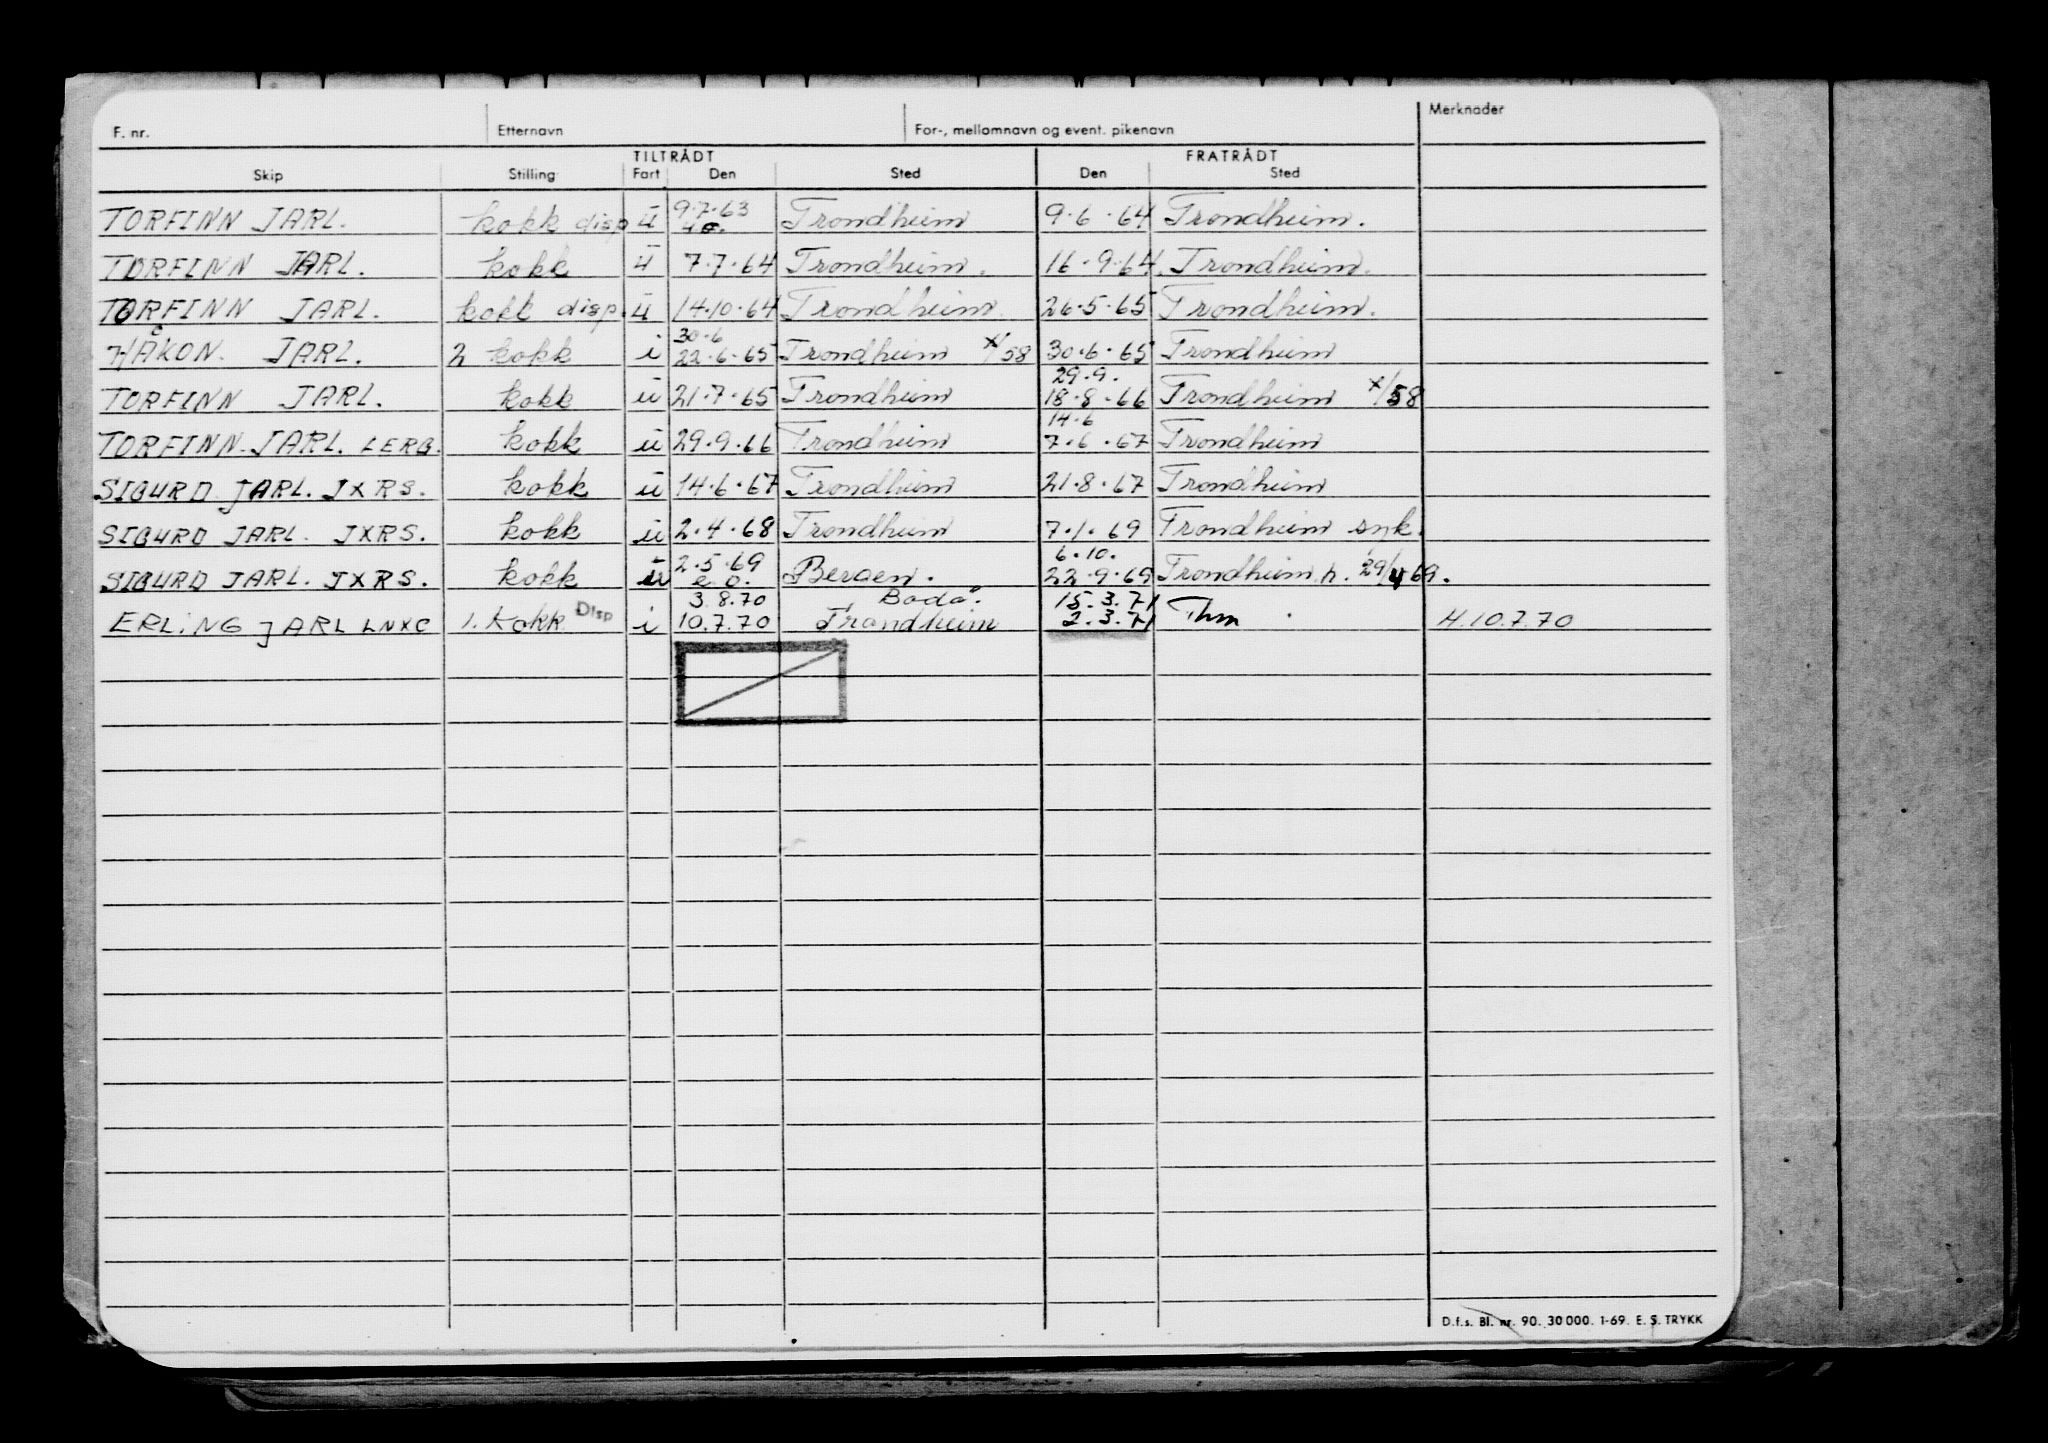 F. nr. Etternavn For-, mellomnavn og event. pikenavn Merknader
TILTRÅDT FRATRÅDT
Skip Stilling Fart Den Sted Den Sted
9.7.63
TORFINN JARL. kokk disp ü Trondheim 9.6.64 Trondheim.
TORFINN JARL. kokk ü 7.7.64 Trondheim. 16.9.64. Trondheim.
TORFINN JARL. kokk disp. ü 14.10.64 Trondheim. 26.5.65 Trondheim.
30.6
HÅKON JARL. 2 kokk i 22.6.65 Trondheim x/58 30.6.65 Trondheim
29.9.
TORFINN JARL. kokk ü 21.7.65 Trondheim 18.8.66 Trondheim x/58
14.6
TORFINN JARL. LERG. kokk ü 29.9.66 Trondheim 7.6.67 Trondheim
SIGURD JARL. JXRS. kokk ü 14.6.67 Trondheim 21.8.67 Trondheim
SIGURD JARL. JXRS. kokk ü 2.4.68 Trondheim 7.1.69 Trondheim syk.
2.5.69 6.10.
SIGURD JARL. JXRS. kokk ü e.o. Bergen. 22.9.69 Trondheim h. 29/4 69.
3.8.70 Bodø. 15.3.71
ERLING JARL LNXC 1. Kokk Disp i 10.7.70 Trondheim 2.3.71 Thm H.10.7.70
D.f.s. Bl. nr. 90. 30 000. 1-69. E. S. TRYKK